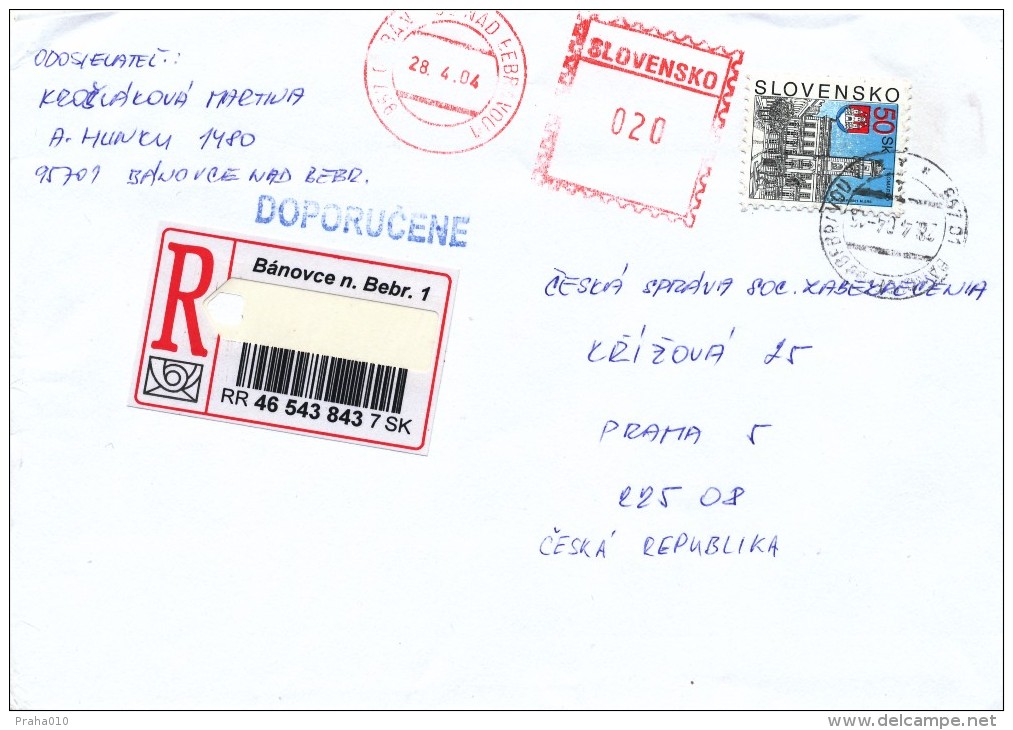 ODOSIELATEĽ:
KROČLÁKOVÁ MARTINA
A. HLINKU 1480
95701 BÁNOVCE NAD BEBR.
DOPORUČENE
28.4.04
SLOVENSKO
020
SLOVENSKO
50 SK
28.4.04-15
R
Bánovce n. Bebr. 1
RR 46 543 843 7 SK
ČESKÁ SPRÁVA SOC. ZABEZPEČENIA
KŘÍŽOVÁ 25
PRAHA 5
225 08
ČESKÁ REPUBLIKA
Praha010
delcampe.net